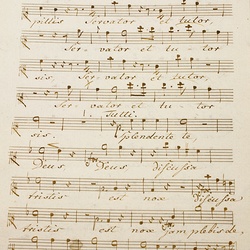 pillis Servator et tutor,
Ser- vator et tu- tor
sis, Servator et tutor,
Ser- vator et tu- tor
Tutti.
sis. Splendente te
Deus Deus discussa
tristis est nox discussa
tristis est nox